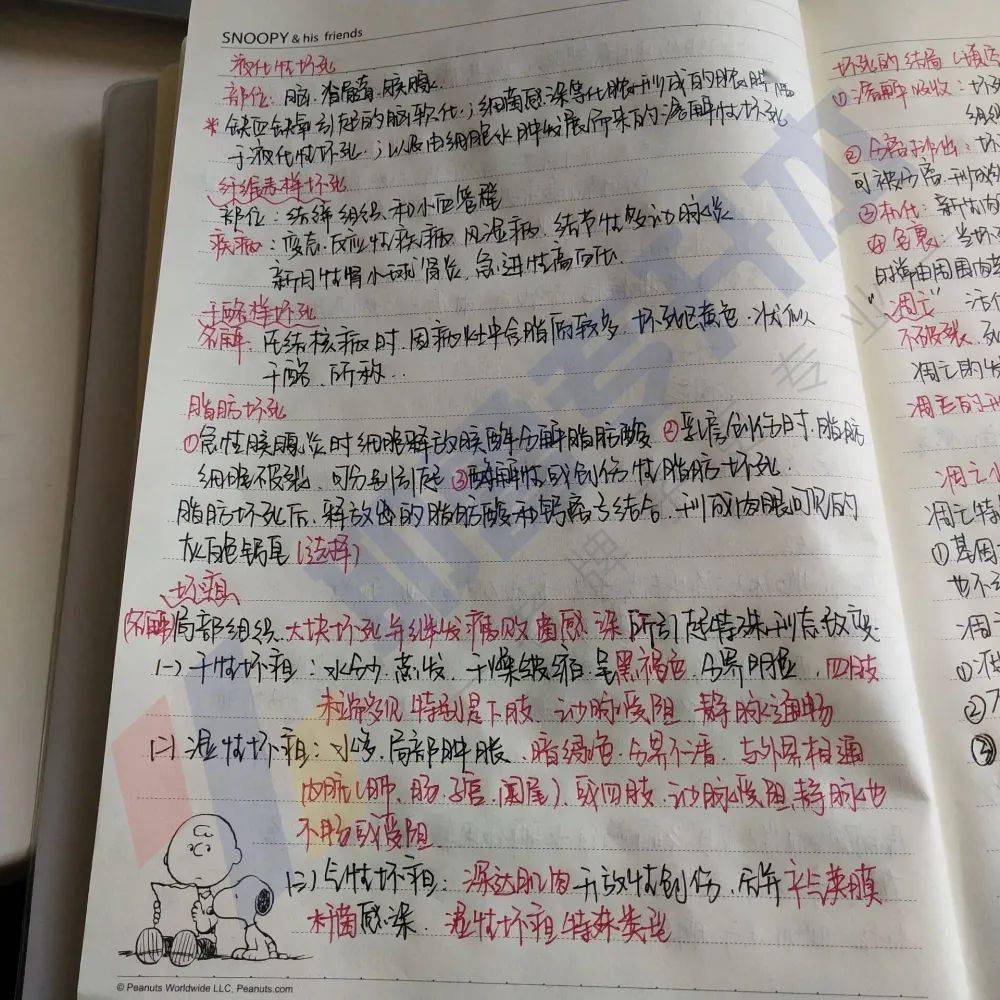 SNOOPY & his friends
液化性坏死
部位：脑、脊髓、胰腺
* 缺血缺氧引起的脑软化；细菌感染等化脓形成的脓肿 属
于液化性坏死；以及由细胞水肿发展而来的溶解性坏死
纤维素样坏死
部位：结缔组织和小血管壁
疾病：变态反应性疾病 风湿病、结节性多动脉炎
新月性肾小球肾炎、急进性高血压
干酪样坏死
名解 在结核病时，因病灶中含脂质较多，坏死呈黄色，状似
干酪、所称..
脂肪坏死
①急性胰腺炎时细胞释放胰酶分解脂肪酸 ②乳房创伤时，脂肪
细胞破裂，可分别引起 ③酶解性或创伤性脂肪坏死
脂肪坏死后，释放出的脂肪酸和钙离子结合，形成肉眼可见的
灰白色钙皂（选择）
坏疽
(名解)局部组织 大块坏死并继发腐败菌感染 所引起特殊形态改变
(一)干性坏疽：水分蒸发、干燥皱缩 呈黑褐色，分界明显，四肢
末端多见 特别是下肢，动脉受阻 静脉通畅
(二)湿性坏疽：水多，局部肿胀、暗绿色，分界不清，与外界相通
内脏（肺、肠、子宫、阑尾），或四肢，动脉受阻 静脉也
不畅或受阻
(三)气性坏疽：深达肌肉 开放性创伤，合并产气荚膜
杆菌感染 湿性坏疽特殊类型
© Peanuts Worldwide LLC, Peanuts.com
坏死的结局
①溶解吸收：坏
②分离排出：坏
可被分离，形成
③机化：新生肉
④包裹：当坏
时常由周围肉芽
"凋亡"
不破裂，死
凋亡的发
凋亡小
凋亡特
①基因
也不
凋亡
①
②
③